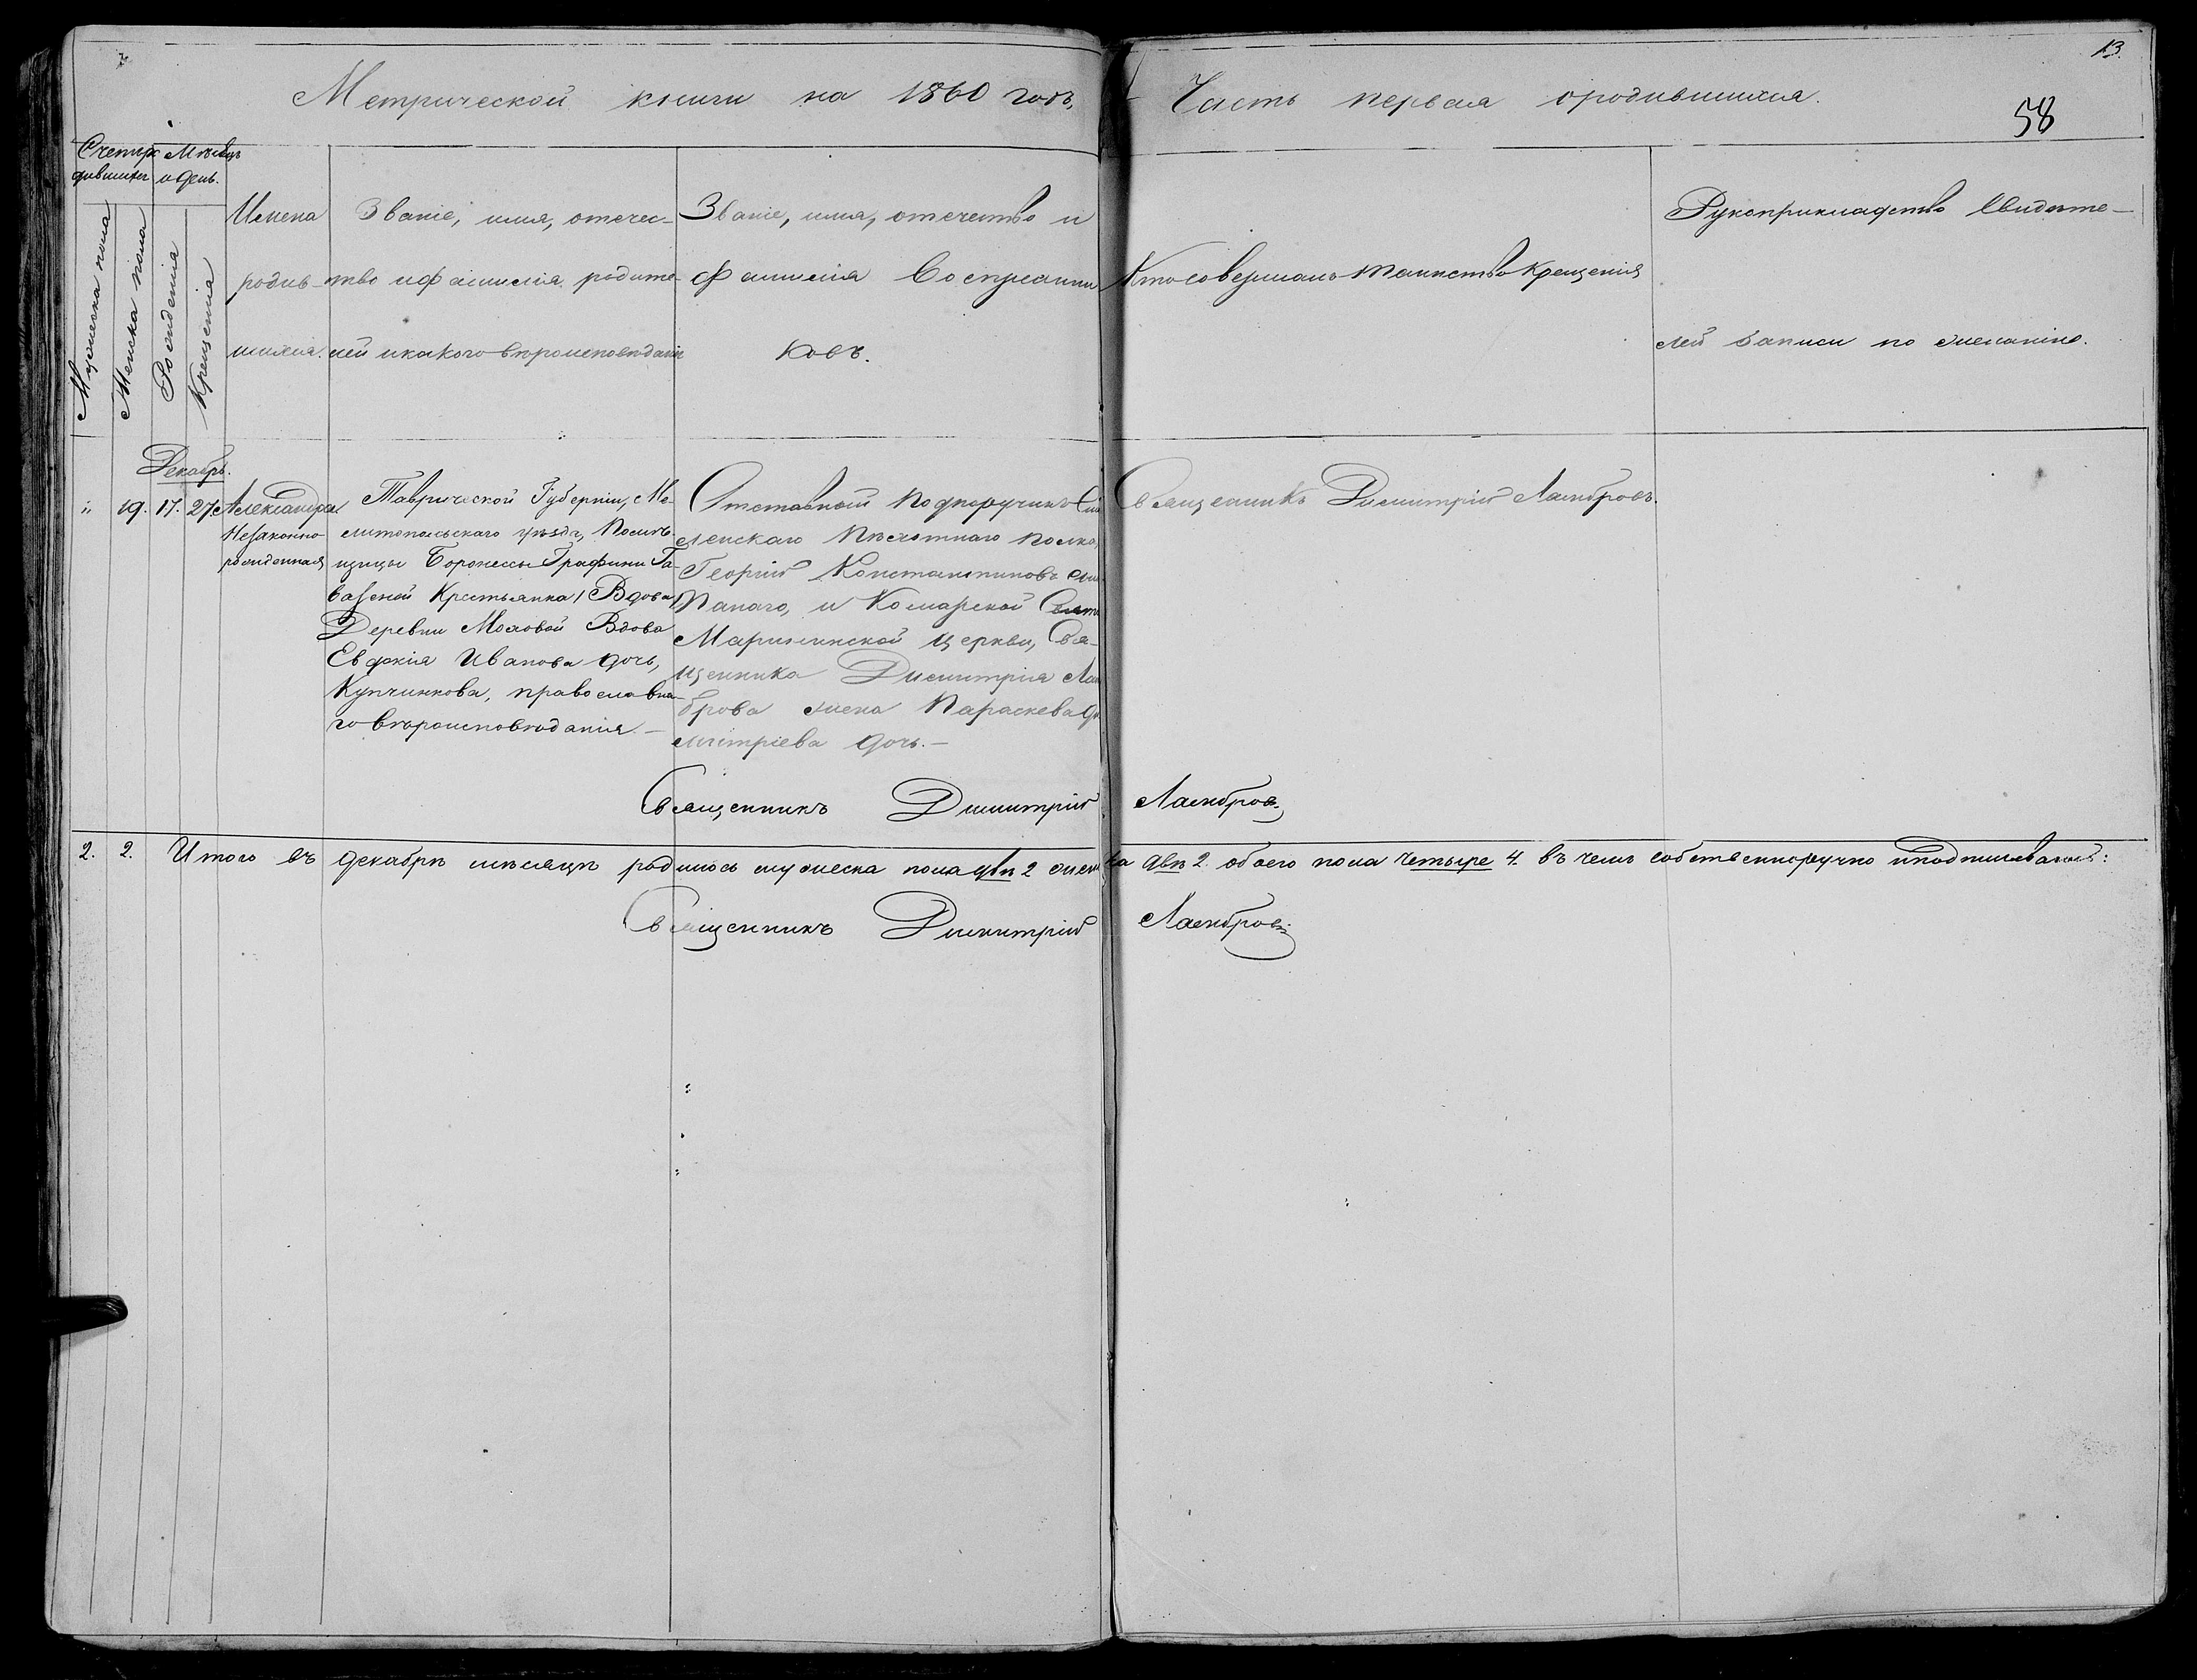 13.
Метрической книги на 1860 годъ, Часть первая ородившихся.
58
Счетъ ро
дившихся
Мѣсяцъ
и день.
Мужеска пола
Женска пола
Рожденія
Крещенія
Имена
родив-
шихся.
Званіе, имя, отечес-
тво ифамилія родите-
лей икакого вѣроисповѣданія
Званіе, имя, отечество и
фамилія Воспріемни
ковъ.
Кто совершалъ таинство Крещенія
Рукоприкладство Свидѣте-
лей записи по желанію.
Декабрь.
" 19. 17. 27. Александра
Незаконно-
рожденная
Таврической Губерніи, Ме-
литопольскаго уѣзда, Помѣ-
щицы Боронессы Графини Га-
вазеной Крестьянка / Вдова,
Деревни Моховой Вдова
Евдокія Иванова дочь,
Купчинкова, православна-
го вѣроисповѣданія. —
Отставный Подпоручикъ
ленскаго Пѣхотнаго полка,
Георгій Константиновъ
Папаго, и Комарской
Маріинской церкви, Свя-
щенника Димитрія Лам
брова жена Параскева Ди
митріева дочь. —
Священникъ Димитрій Ламбровъ.
Священникъ Димитрій Ламбровъ
2. 2. Итого въ декабрѣ мѣсяцѣ родилось мужеска пола два 2 женска двѣ 2. обоего пола четыре 4. въ чемъ собственноручно иподписываюсь:
Священникъ Димитрій Ламбровъ